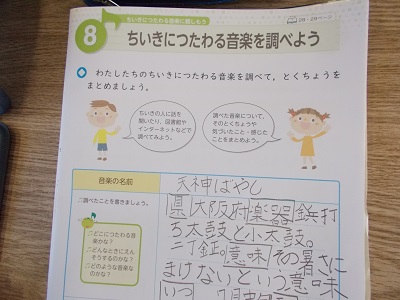 ちいきにつたわる音楽に親しもう
28・29ページ
8 ちいきにつたわる音楽を調べよう
わたしたちのちいきにつたわる音楽を調べて、とくちょうを
まとめましょう。
ちいきの人に話を
聞いたり、図書館や
インターネットなどで
調べてみよう。
調べた音楽について、
そのとくちょうや
気づいたこと・感じた
ことをまとめよう。
音楽の名前
天神ばやし
調べたことを書きましょう。
県大阪府楽器鉦打
ち太鼓と小太鼓。
二丁鉦。意味その暑さに
まけないという意味
いつ 7月
どこにつたわる音
楽かな?
どんなときにえん
そうするのかな?
どのような音楽な
のかな?